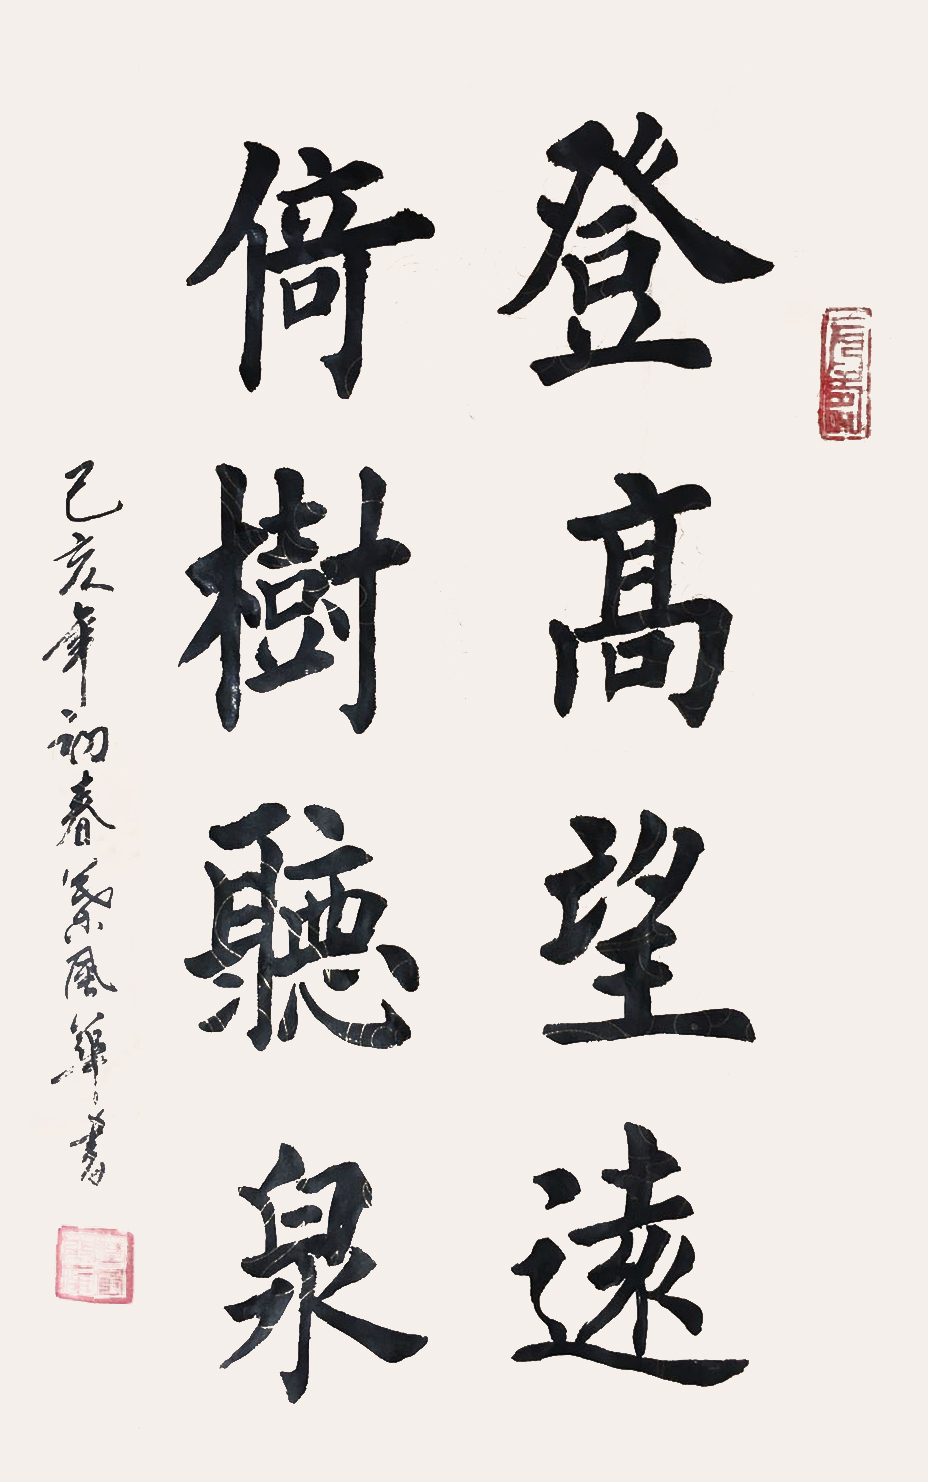 登高望遠
倚樹聽泉
己亥年初春 風華書